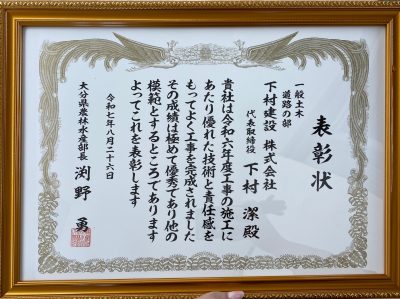 表彰状
一般土木
道路の部
下村建設 株式会社
代表取締役 下村 潔 殿
貴社は令和六年度工事の施工に
あたり優れた技術と責任感を
もってよく工事を完成されました
その成績は極めて優秀であり他の
模範とするところであります
よってこれを表彰します
令和七年八月二十六日
大分県農林水産部長 渕野 勇